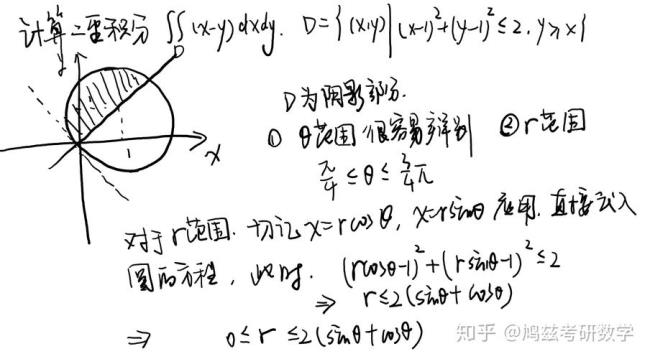 计算二重积分 ∬_D (x-y) dxdy. D={(x,y)|(x-1)²+(y-1)²≤2, y≥x}
y
x
D为阴影部分.
① θ范围很容易辨别 ② r范围
π/4 ≤ θ ≤ 3/4 π
对于r范围. 切记 x=rcosθ, x=rsinθ 应用. 直接代入
圆的方程, 此时. (rcosθ-1)²+(rsinθ-1)²≤2
⇒ r≤2(sinθ+cosθ)
⇒ 0≤r≤2(sinθ+cosθ)
知乎 @鸠兹考研数学